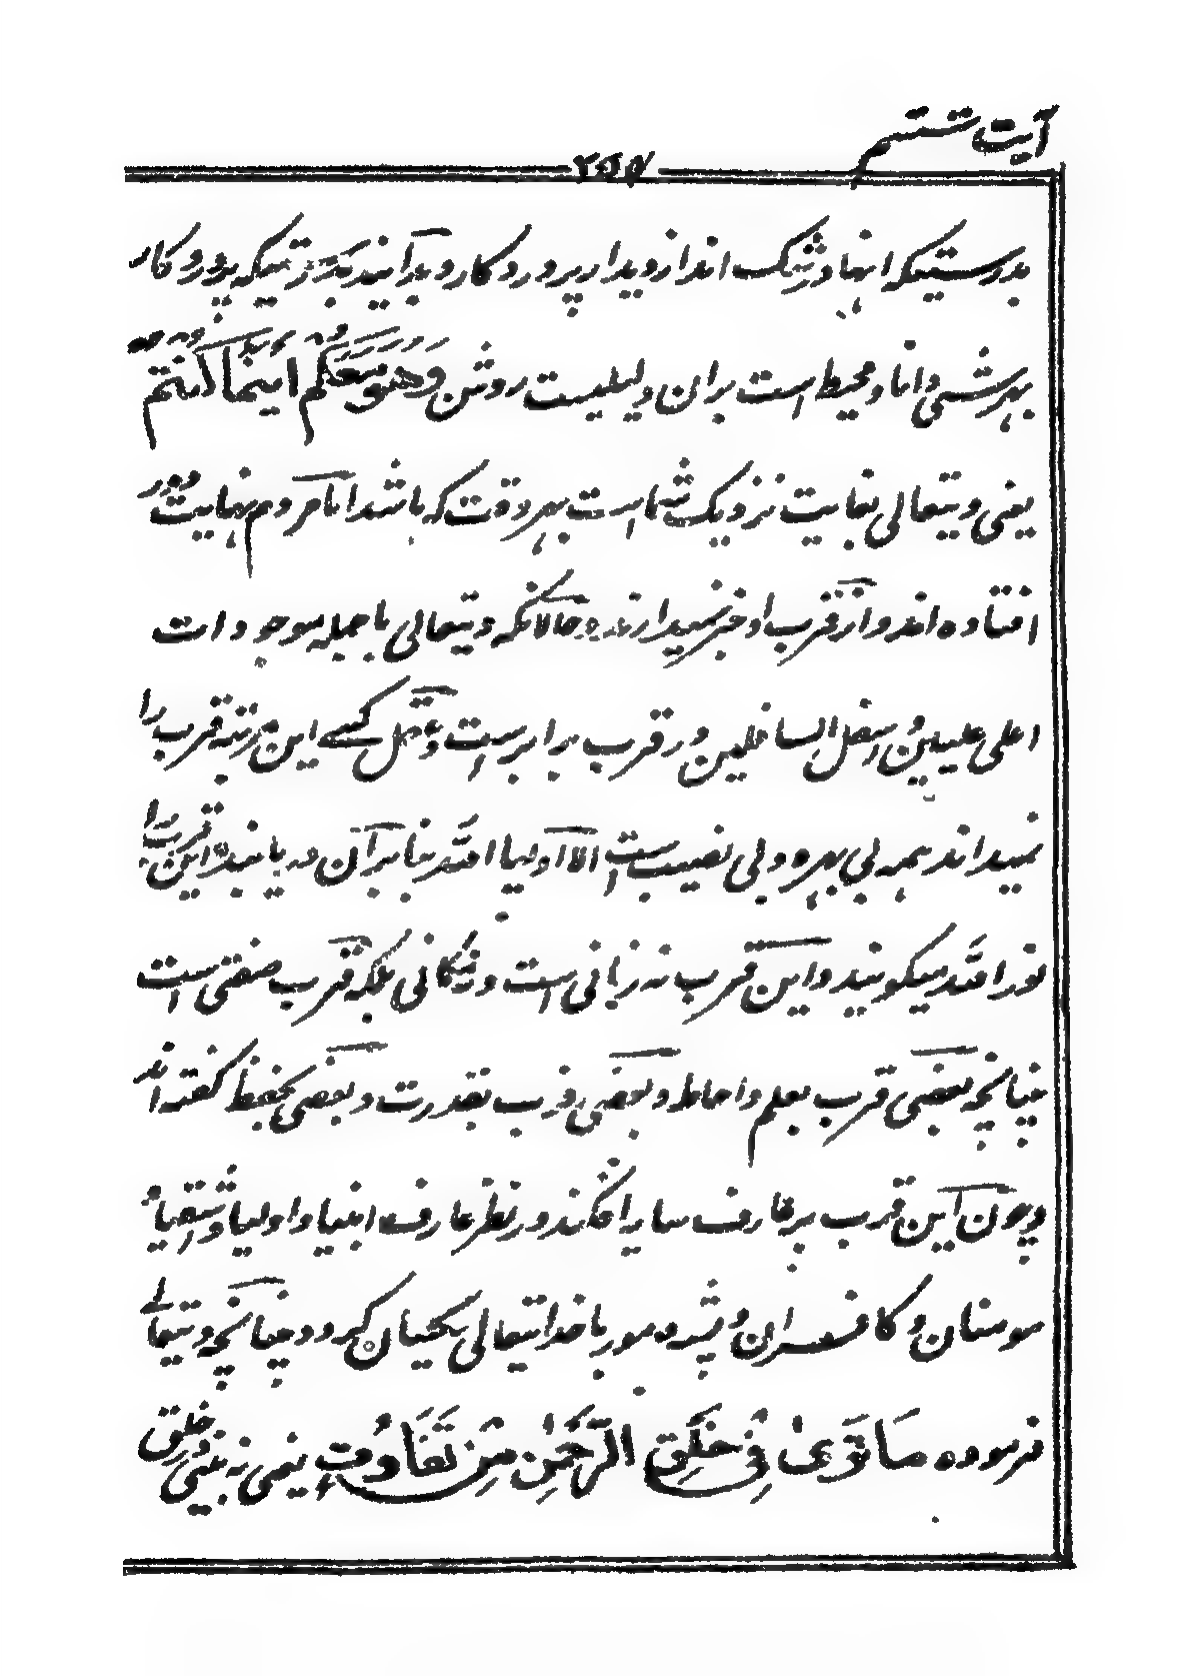 آیت ششم
۲۵۷
بدرستیکه اینها در شک اند از دیدار پروردگار و بدانید بدرستیکه پروردگار
بهر شی دانا و محیط است بران دلیلیست روشن وَهُوَ مَعَكُمْ اَیْنَمَا كُنْتُمْ
یعنی ویتعالی بغایت نزدیک شما است بهر وقت که باشد اما مردم بنهایت دور
افتاده اند و از قرب او خبر نمیدارند و حالانکه ویتعالی با جمله موجودات
اعلی علیین و اسفل السافلین در قرب برابر است و عقل کسے این مرتبه قرب را
نمیداند همه بی بهره و بی نصیب است الا اولیا الله بنا بر آن مه یابند این قرب را
نور الله میگویند و این قرب نه زبانی است و نه مکانی بلکه قرب صفتی است
چنانچه بعضی قرب بعلم و احاطه و بعضی قرب بقدرت و بعضی بحفظ گفته اند
و چون این قرب بر عارف سایه افکند در نظر عارف انبیا و اولیا و اشقیاء
مومنان و کافران و پشه و مور با خدایتعالی یکسان گردد چنانچه ویتعالے
فرموده مَا تَرٰی فِیْ خَلْقِ الرَّحْمٰنِ مِنْ تَفَاوُتٍ یعنی نه بینی در خلق